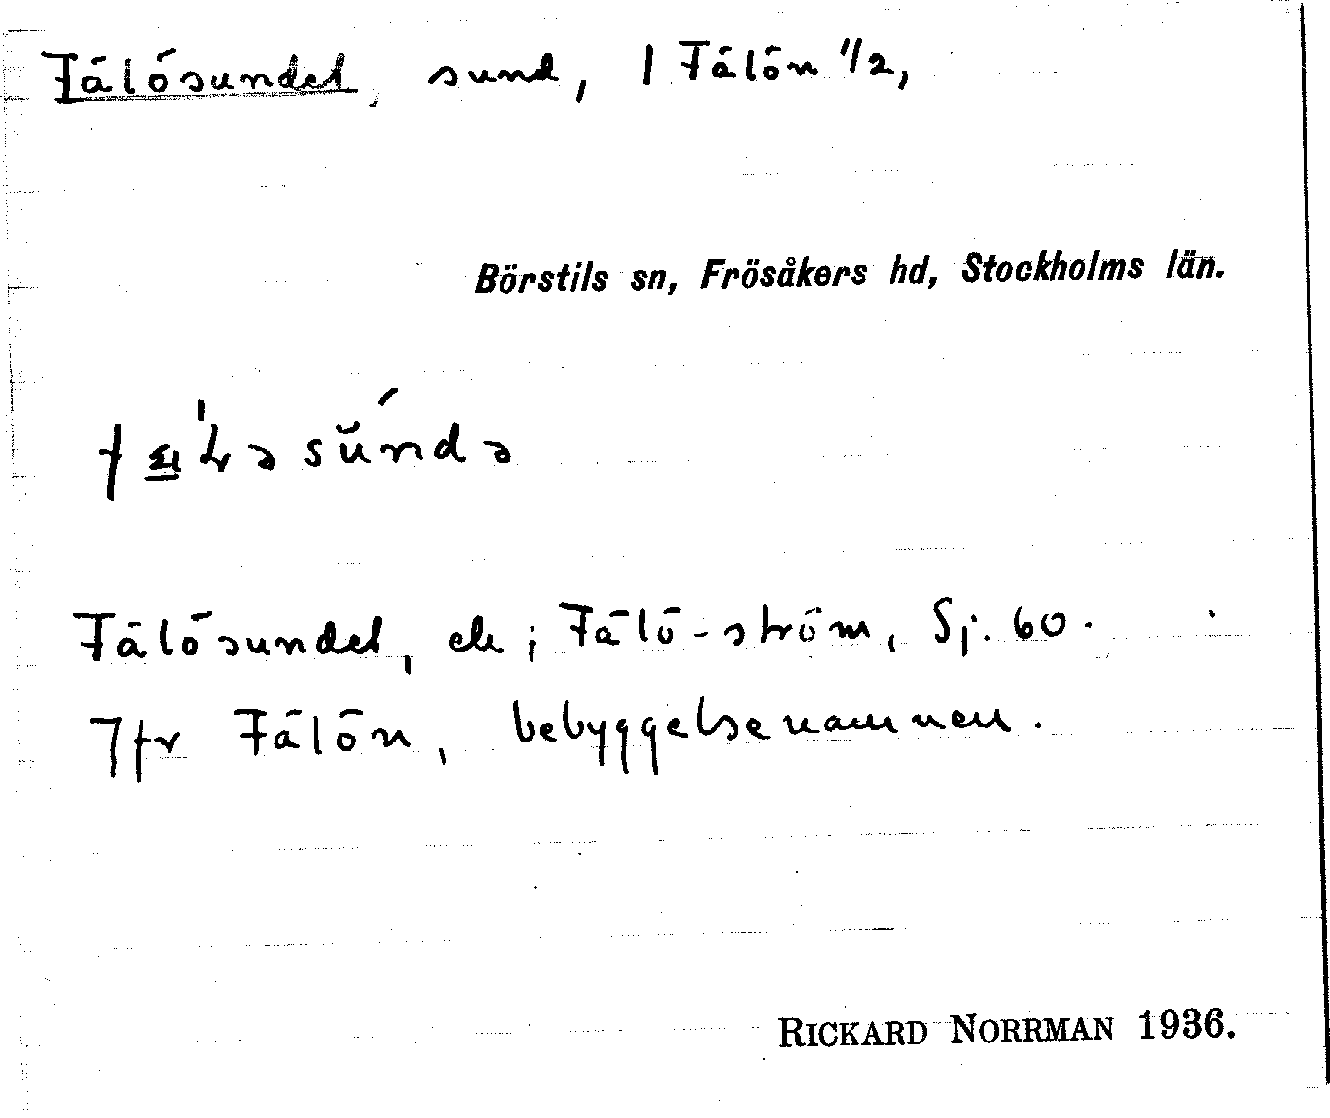 Fälösundet, sund, 1 Fälön 1/2,
Börstils sn, Frösåkers hd, Stockholms län.
Fälösundet, ek; Fälö-ström, Sj. 60.
Jfr Fälön, bebyggelsenamnen.
RICKARD NORRMAN 1936.